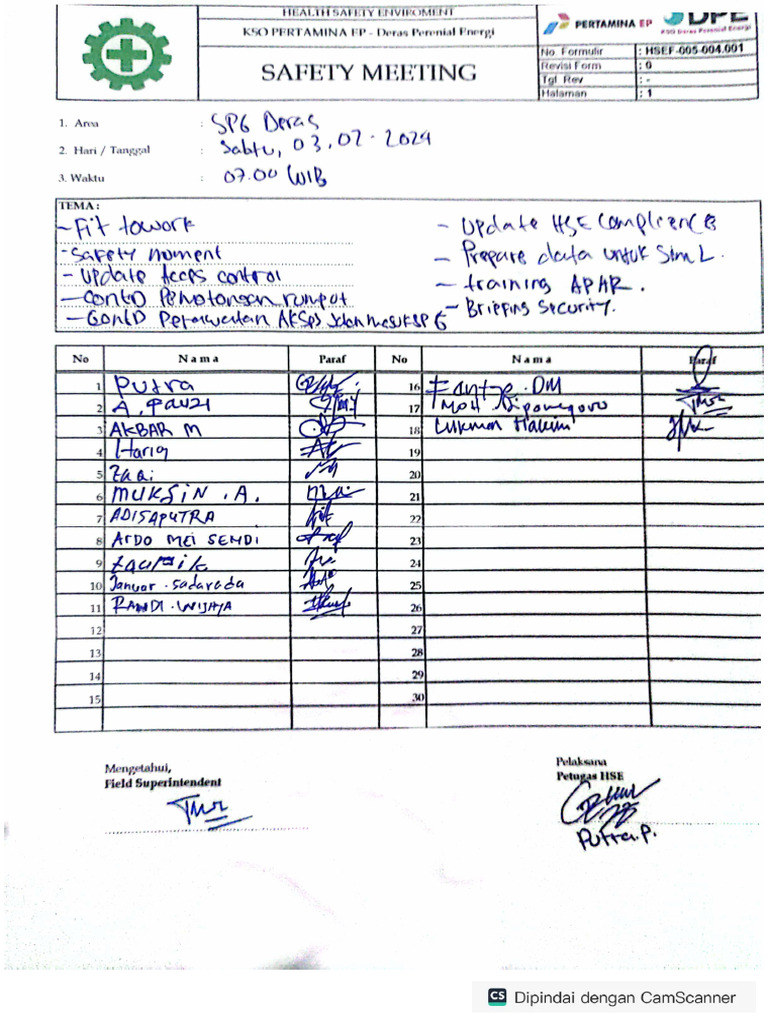 HEALTH SAFETY ENVIROMENT
KSO PERTAMINA EP - Deras Perenial Energi
SAFETY MEETING
PERTAMINA EP
DPE
KSO Deras Perenial Energi
No. Formulir : HSEF-005-004.001
Revisi Form : 0
Tgl. Rev : -
Halaman : 1
1. Area : SPG Deras
2. Hari / Tanggal : Sabtu, 03.02-2024
3. Waktu : 07.00 WIB
TEMA :
- Fit towork
- Safety moment
- Update acces control
- Contd Pemotongan rumput
- Contd Perawatan AKSes Jalan masuk SPG
- Update HSE Complience
- Prepare data untuk
- training APAR.
- Briefing Security.
No Nama Paraf No Nama Paraf
1 Putra 16 DM
2 A. Fauzi 17 Moh. Diponegoro
3 AKBAR M 18 Lukman Hakim
4 19
5 20
6 MUKSIN . A. 21
7 ADISAPUTRA 22
8 ARDO MEI SENDI 23
9 Taufik 24
10 Januar . sadarada 25
11 RANDI . WIJAYA 26
12 27
13 28
14 29
15 30
Mengetahui,
Field Superintendent
Pelaksana
Petugas HSE
Putra.P.
CS Dipindai dengan CamScanner